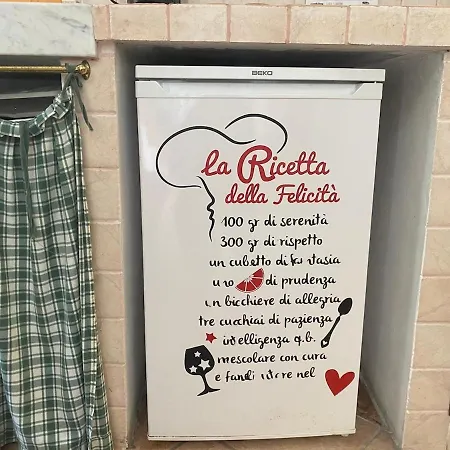 BEKO
la Ricetta
della Felicità
100 gr di serenità
300 gr di rispetto
un cubetto di fantasia
uno di prudenza
un bicchiere di allegria
tre cucchiai di pazienza
intelligenza q.b.
mescolare con cura
e nel